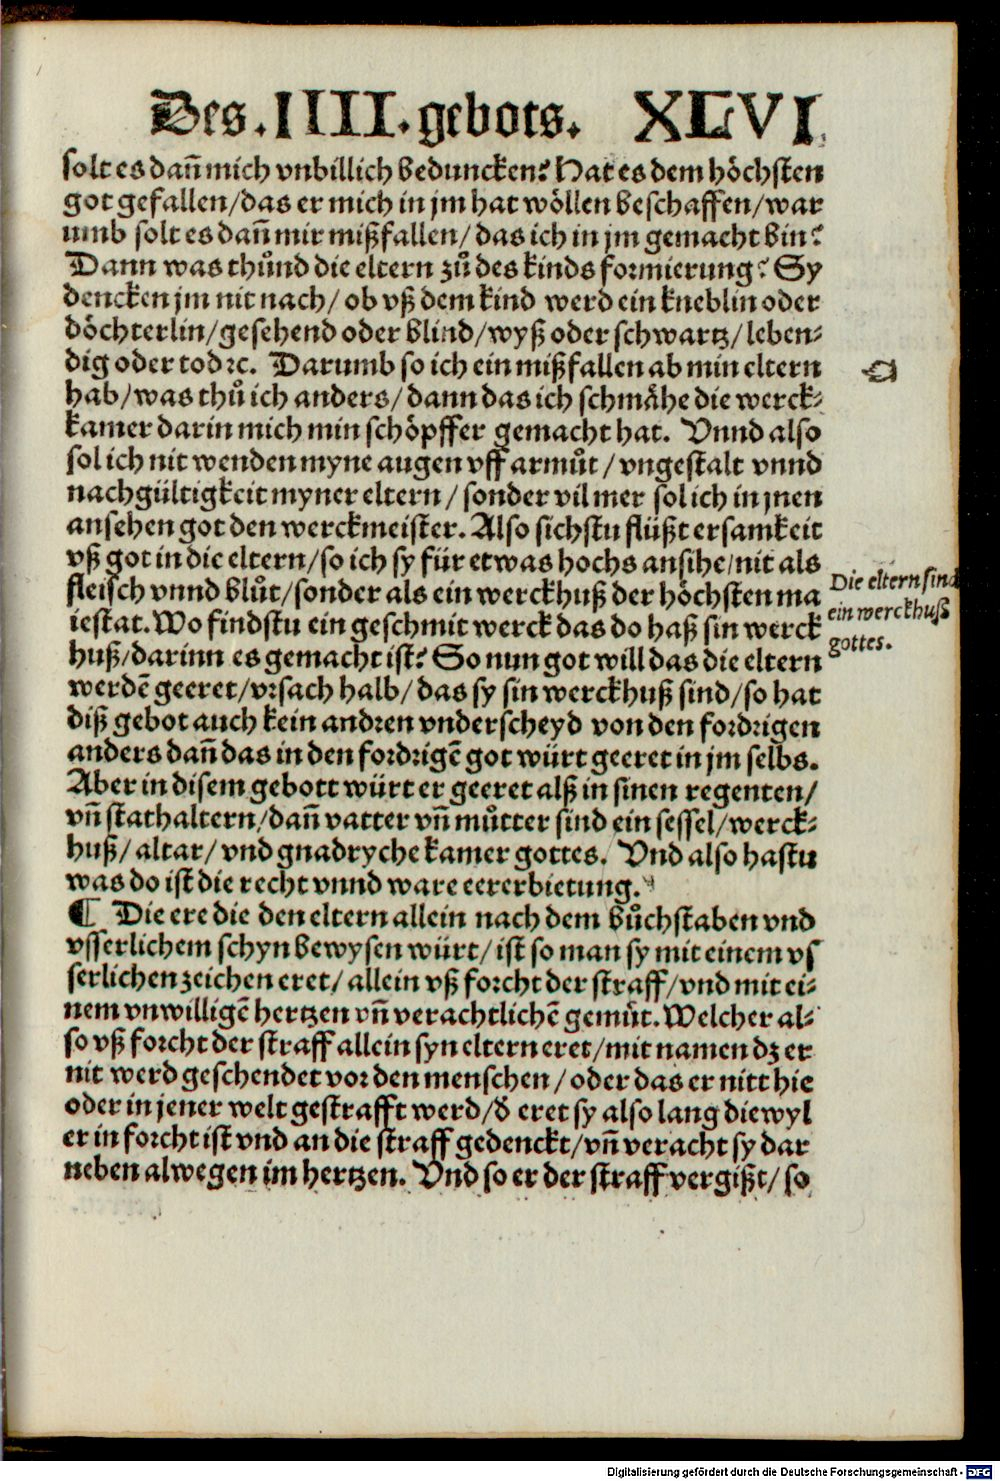 Des. IIII. gebots. XLVI.
solt es dañ mich vnbillich beduncken? Hat es dem höchsten
got gefallen/das er mich in jm hat wöllen beschaffen/war
umb solt es dañ mir mißfallen/das ich in jm gemacht bin?
Dann was thůnd die eltern zů des kinds formierung? Sy
dencken jm nit nach/ob vß dem kind werd ein kneblin oder
döchterlin/gesehend oder blind/wyß oder schwartz/leben⸗
dig oder tod ⁊c. Darumb so ich ein mißfallen ab min eltern
hab/was thů ich anders/dann das ich schmähe die werck⸗
kamer darin mich min schöpffer gemacht hat. Vnnd also
sol ich nit wenden myne augen vff armůt/vngestalt vnnd
nachgültigkeit myner eltern/sonder vil mer sol ich in jnen
ansehen got den werckmeister. Also sichstu flüßt ersamkeit
vß got in die eltern/so ich sy für etwas hochs ansihe/nit als
fleisch vnnd blůt/sonder als ein werckhuß der höchsten ma
iestat. Wo findstu ein geschmit werck das do haß sin werck
huß/darinn es gemacht ist? So nun got will das die eltern
werdē geeret/vrsach halb/das sy sin werckhuß sind/so hat
diß gebot auch kein andren vnderscheyd von den fordrigen
anders dañ das in den fordrigē got würt geeret in jm selbs.
Aber in disem gebott würt er geeret alß in sinen regenten/
vñ stathaltern/dañ vatter vñ můtter sind ein sessel/werck⸗
huß/altar/vnd gnadryche kamer gottes. Vnd also hastu
was do ist die recht vnnd ware eererbietung.
¶ Die ere die den eltern allein nach dem bůchstaben vnd
vsserlichem schyn bewysen würt/ist so man sy mit einem vs
serlichen zeichen eret/allein vß forcht der straff/vnd mit ei⸗
nem vnwilligē hertzen vñ verachtlichē gemüt. Welcher al⸗
so vß forcht der straff allein syn eltern eret/mit namen dz er
nit werd geschendet vor den menschen/oder das er nitt hie
oder in jener welt gestrafft werd/đ eret sy also lang diewyl
er in forcht ist vnd an die straff gedenckt/vñ veracht sy dar
neben alwegen im hertzen. Vnd so er der straff vergißt/so
Die eltern sind
ein werckhuß
gottes.
Digitalisierung gefördert durch die Deutsche Forschungsgemeinschaft - DFG